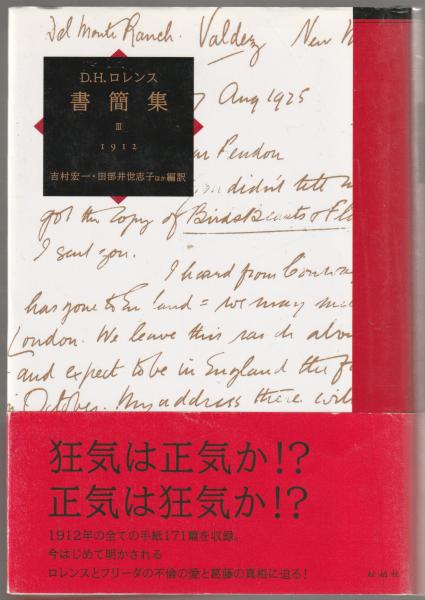 Del Monte Ranch. Valdez New M
D.H.ロレンス
書簡集
III
1912
吉村宏一・田部井世志子ほか編訳
7 Aug 1925
ar Pendon
didn't tell
got the copy of Birds Beasts & Flo
I sent you.
I heard from
has gone to En land = we may
London. We leave this ra ch abou
and expect to be in England the f
in October. My address there will
狂気は正気か!?
正気は狂気か!?
1912年の全ての手紙171篇を収録。
今はじめて明かされる
ロレンスとフリーダの不倫の愛と葛藤の真相に迫る!
松柏社